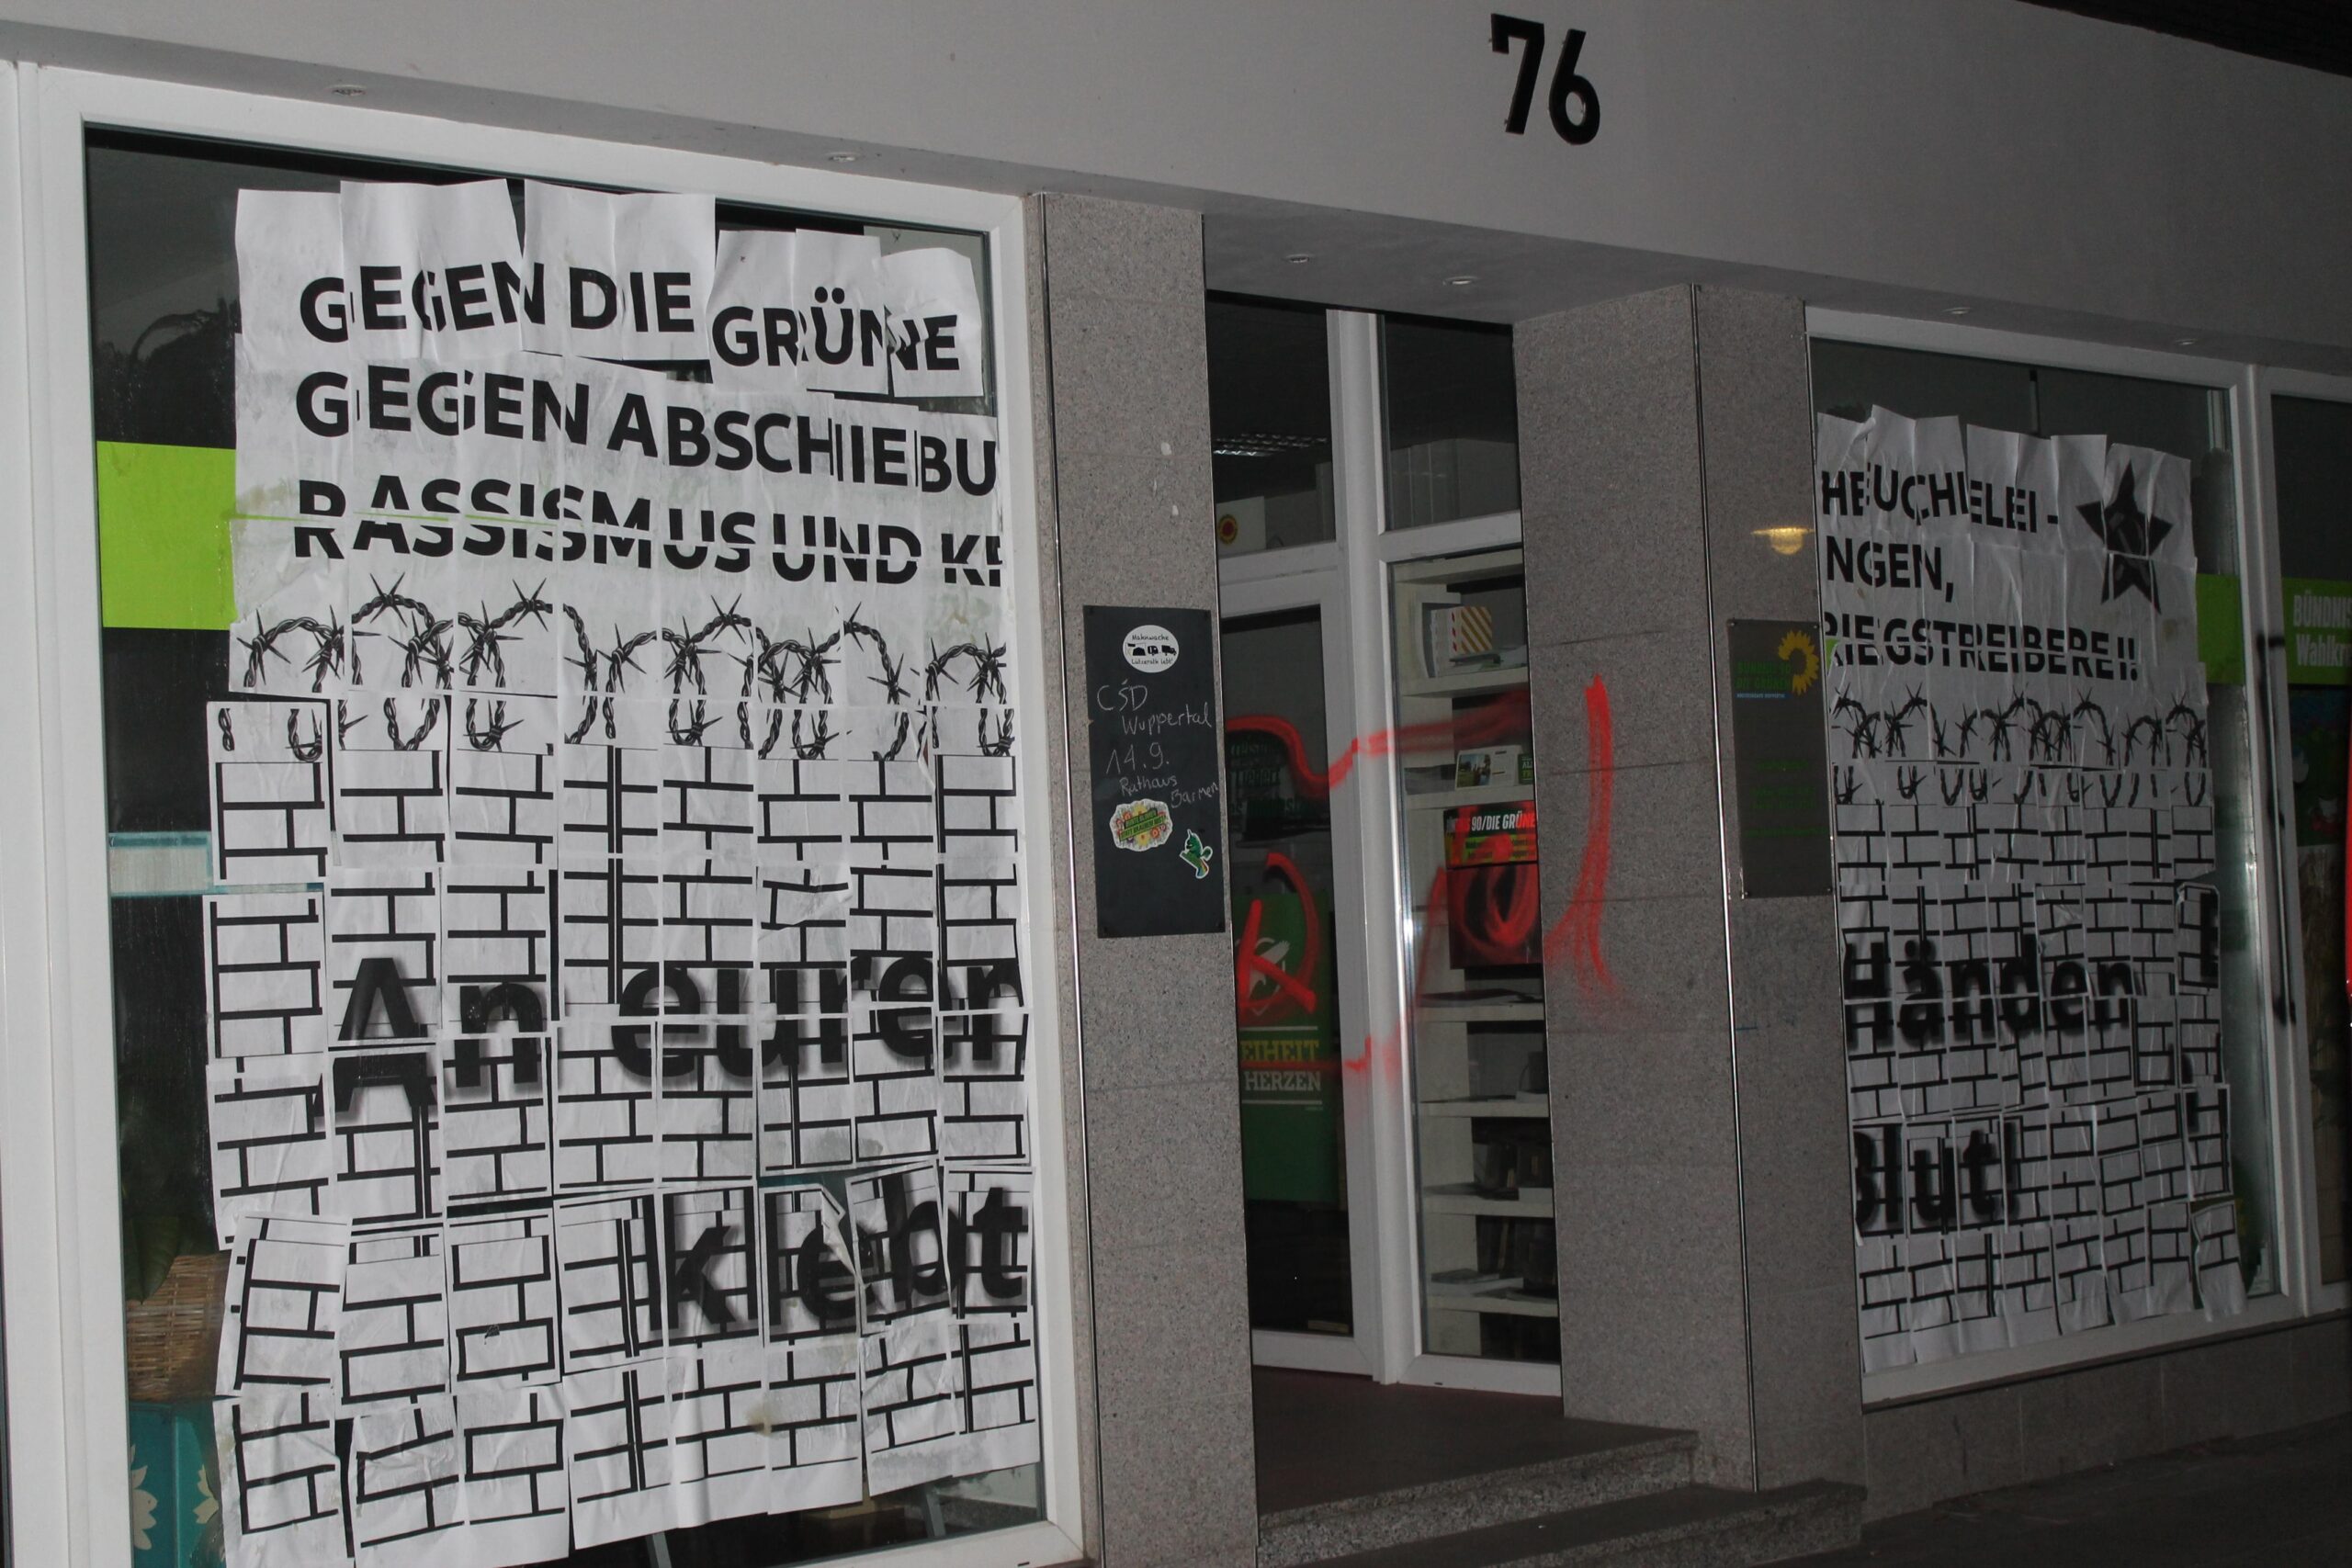 76
GEGEN DIE GRÜNE
GEGEN ABSCHIEBU
RASSISMUS UND KR
An eurer
klebt
HEUCHELEI -
NGEN,
RIEGSTREIBEREI!
Händen
Blut!
Mahnwache
Lützerath lebt!
CSD
Wuppertal
14.9.
Rathaus
Barmen
90/DIE GRÜNE
EIHEIT
HERZEN
BÜNDNIS 90
DIE GRÜNEN
BÜNDN
Wahlkr